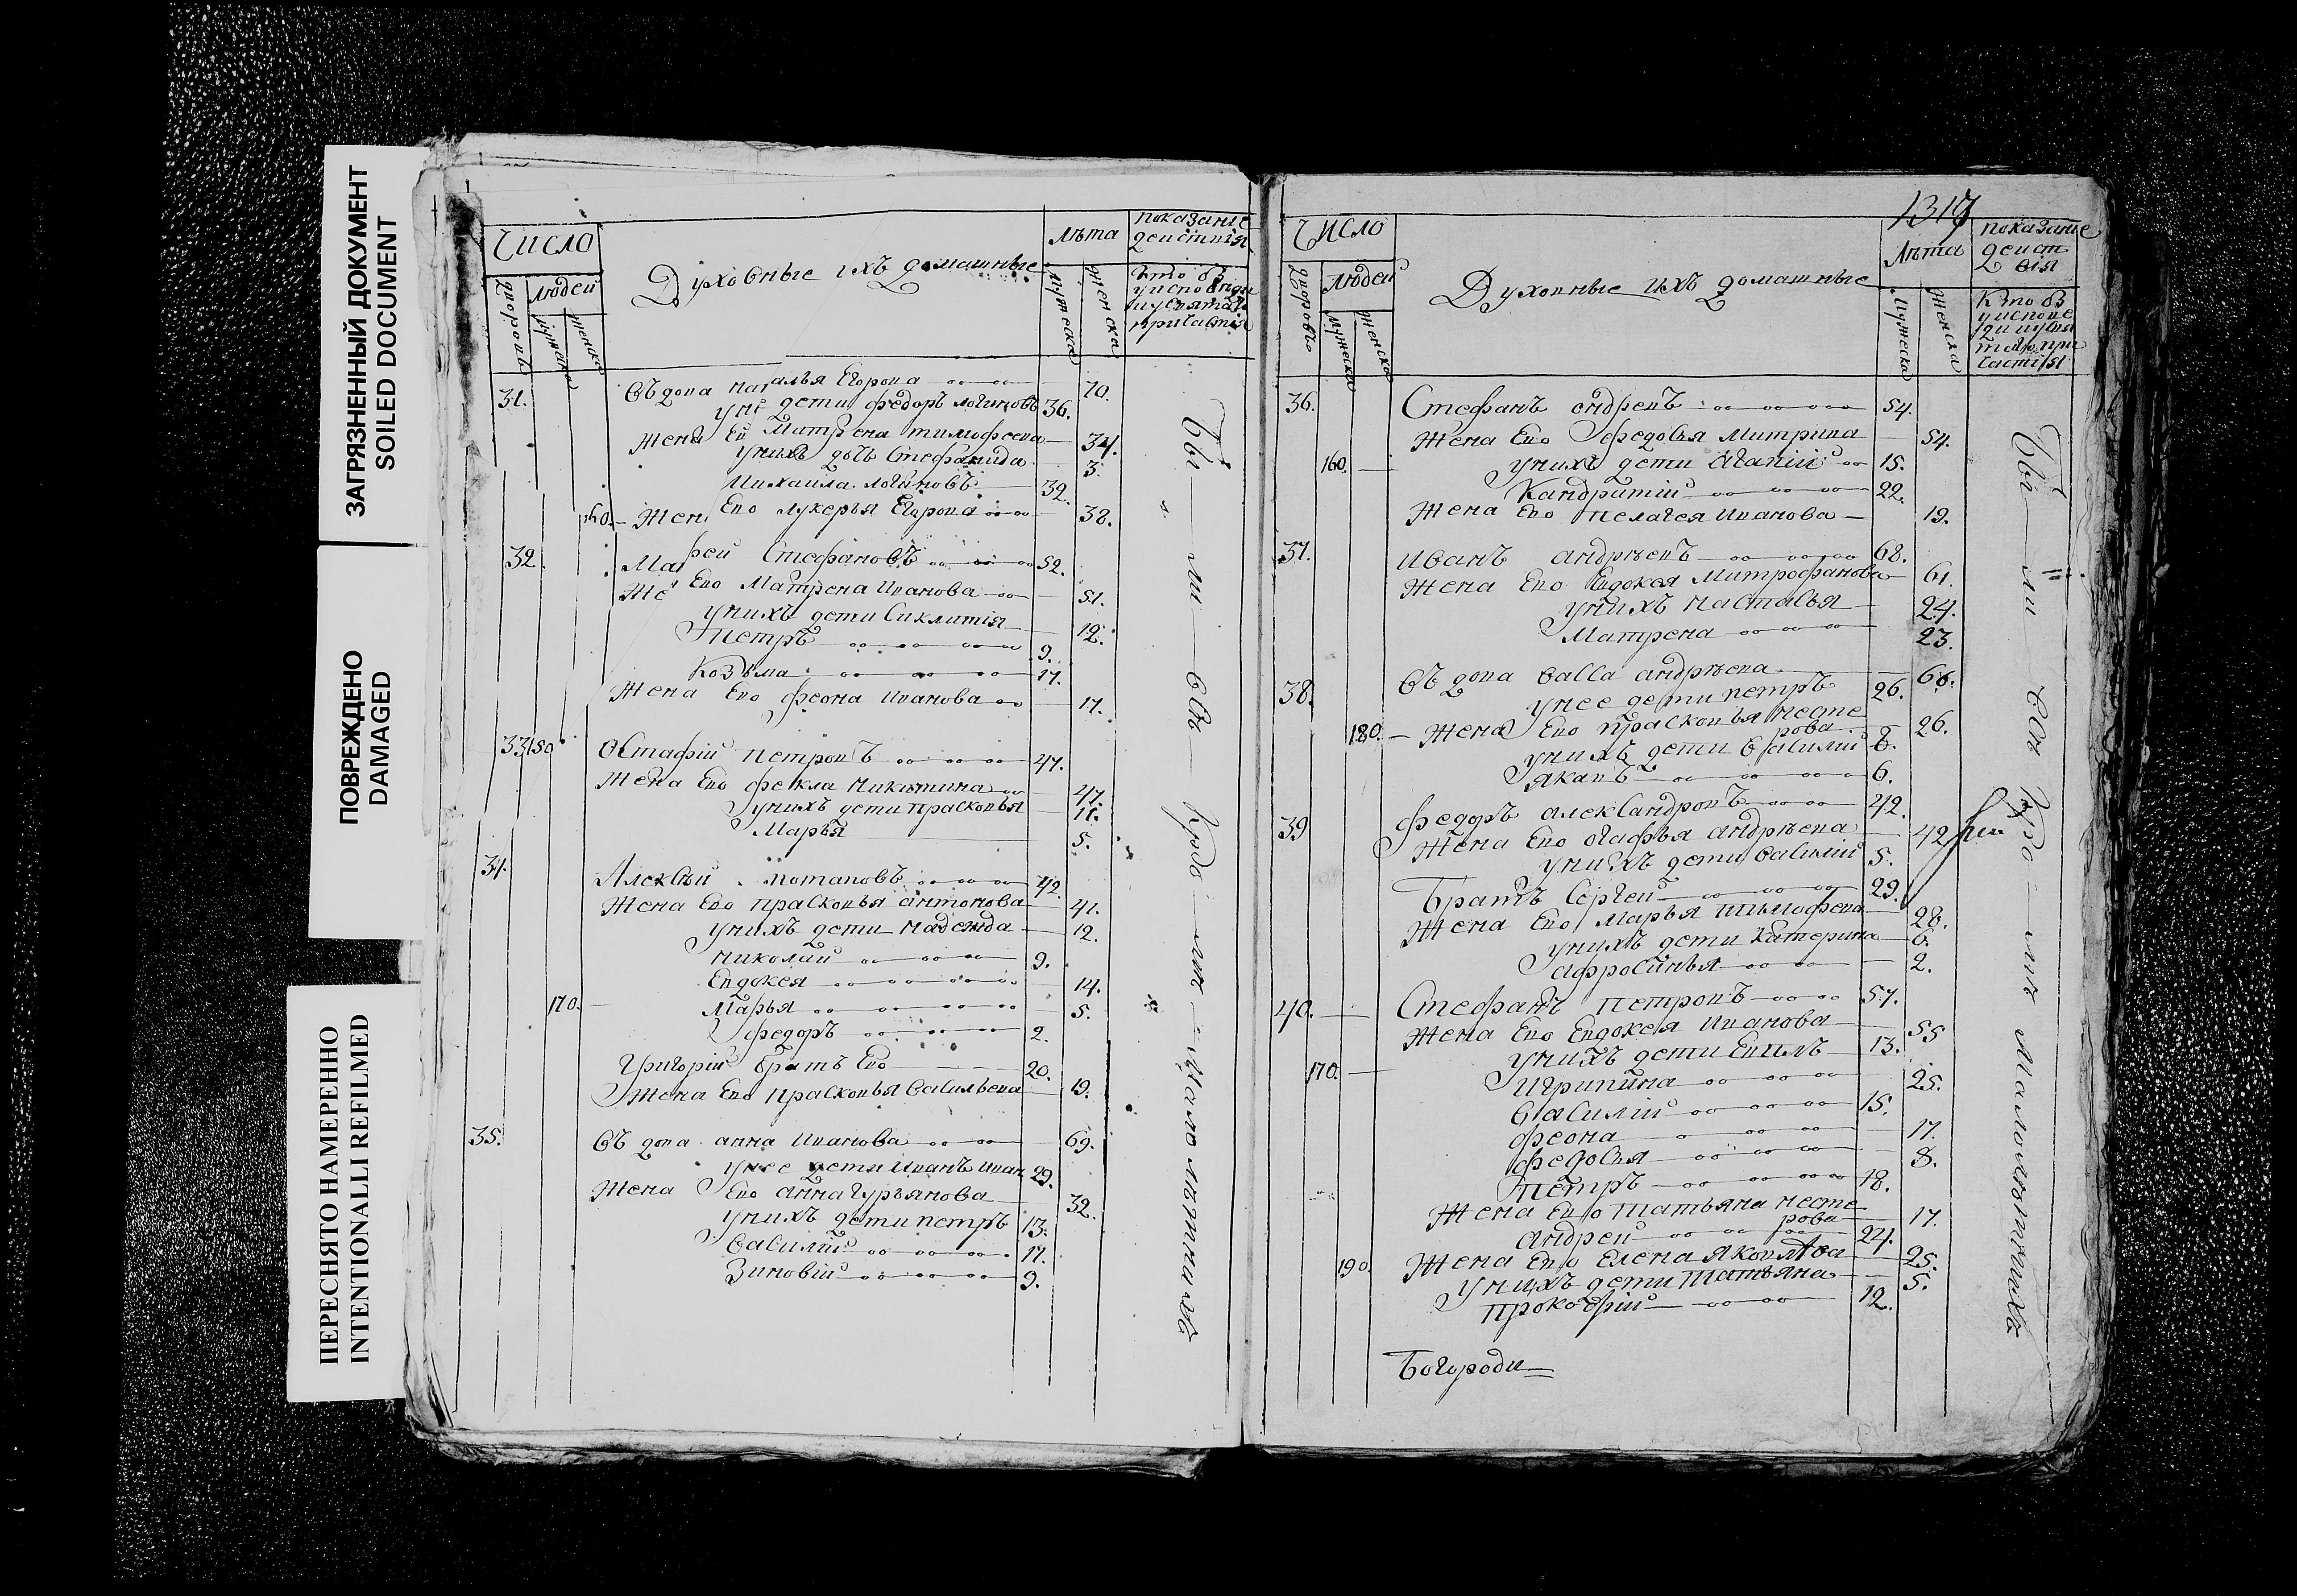 ЗАГРЯЗНЕННЫЙ ДОКУМЕНТ
SOILED DOCUMENT
ПОВРЕЖДЕНО
DAMAGED
ПЕРЕСНЯТО НАМЕРЕННО
INTENTIONALLI REFILMED
Число
людей
Духовные ихъ домашные
лѣта
показание
дѣиствия
31. вдова наталья Егорова 70.
дети федоръ логиновъ 36.
Жена Матрена тимофеева 34.
уних дочь Стефанида 3.
михаила логиновъ 39.
160. Жена Ево лукерья Егорова 38.
32. Стефановъ 52.
Ево Матрена иванова 51.
унихъ дети Сиклитія 12.
Петръ 9.
Козьма 17.
Жена Ево феона иванова 17.
33 150 Остафіи петровъ 47.
Жена Ево фекла никитина 47.
унихъ дети прасковья 11.
Марья 5.
34. Алексѣи потаповъ 42.
Жена Ево прасковья антонова 41.
унихъ дети надежда 12.
николаи 9.
Евдокея 14.
170. Марья 5.
федоръ 2.
Григории братъ Ево 20.
Жена Ево прасковья васильева 19.
35. вдова анна иванова 69.
унее дети иванъ иван 29.
Жена Ево анна гурьянова 32.
унихъ дети петръ 13.
василии 17.
Зиновіи 9.
Бы ли всѣ кроме малолѣтнихъ
1317
Число
людей
Духовные ихъ домашные
лѣта
показание
дѣист
вія
36. Стефанъ андреевъ 54.
Жена Ево федосья Митрива 54.
160. унихъ дети Агапіи 15.
Кандратіи 22.
Жена Ево пелагея иванова 19.
37. иванъ андрѣевъ 68.
Жена Ево Евдокея Митрофанова 61.
унихъ настасья 24.
Матрена 23.
38. вдова васса андрѣева 66.
унее дети петръ 26.
180. Жена Ево прасковья несте
рова 26.
унихъ дети василии 8.
яковъ 6.
39 федоръ александровъ 42.
Жена Ево агафья андрѣева 42
унихъ дети василіи 5.
Братъ Сергеи 29.
Жена Ево марья тимофева 28.
унихъ дети катерина 6.
афросинья 2.
40. Стефанъ петровъ 57.
Жена Ево Евдокея иванова 55
унихъ дети 13.
170. игрипина 25.
василіи 15.
феона 17.
федосья 8.
петръ 18.
Жена Ево татьяна несте
рова 17.
андреи 24.
190. Жена Ево Елена яковлева 25.
унихъ дети татьяна 5.
прокофіи 12.
Богороди
Бы ли всѣ кроме малолѣтнихъ